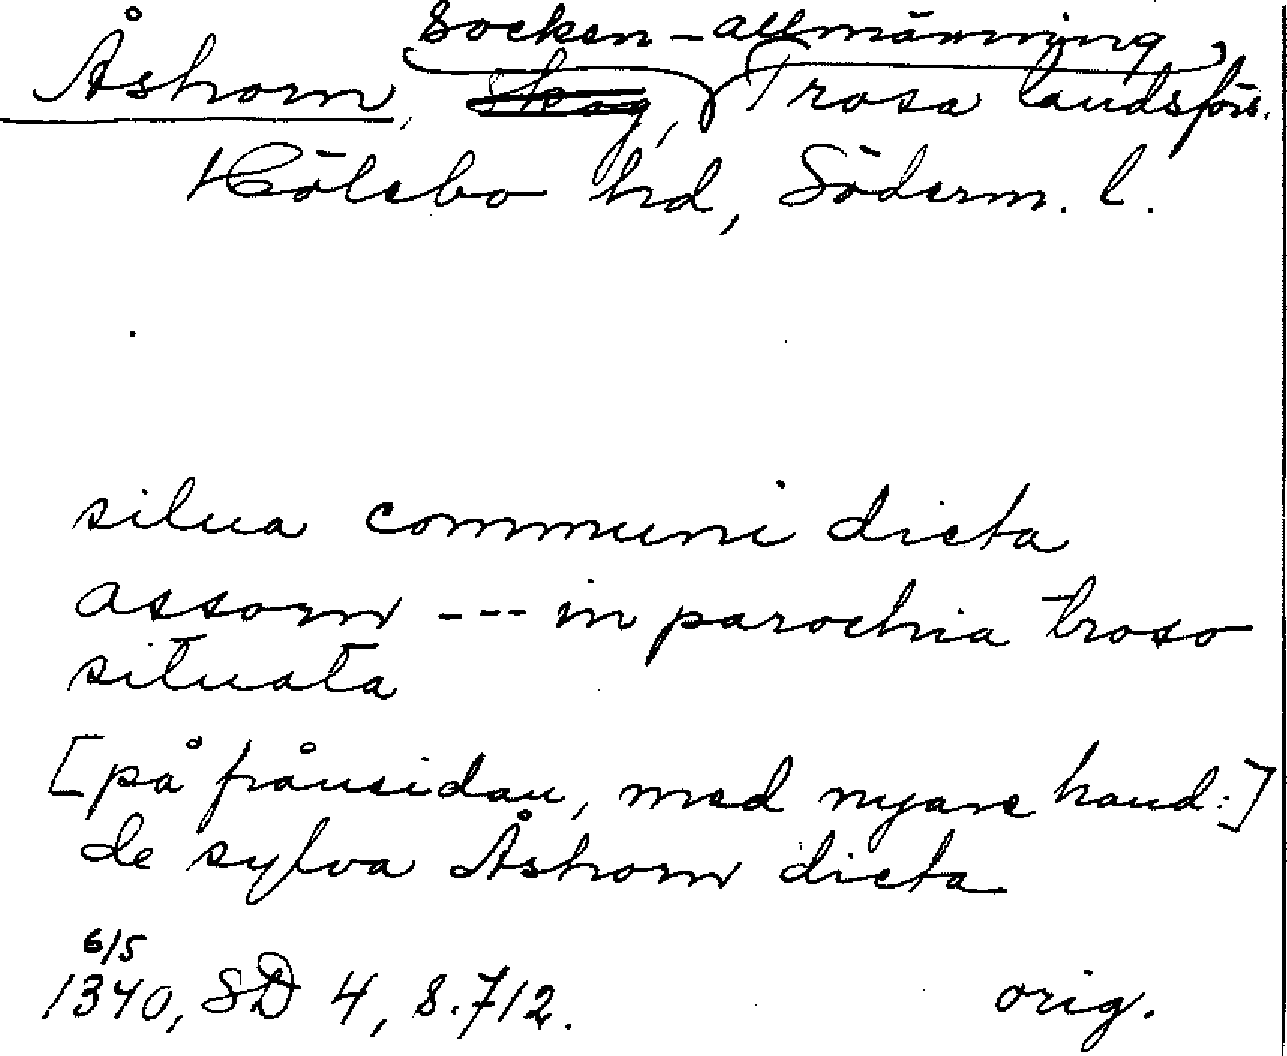 Socken-allmänning
Åshorn, Skog, Trosa landsförs.
Hölebo hd, Söderm. l.
silua communi dicta
assorn --- in parochia troso
situata
[på frånsidan, med nyare hand:]
de sylva Åshorn dicta
6/5
1340, SD 4, s. 712. orig.